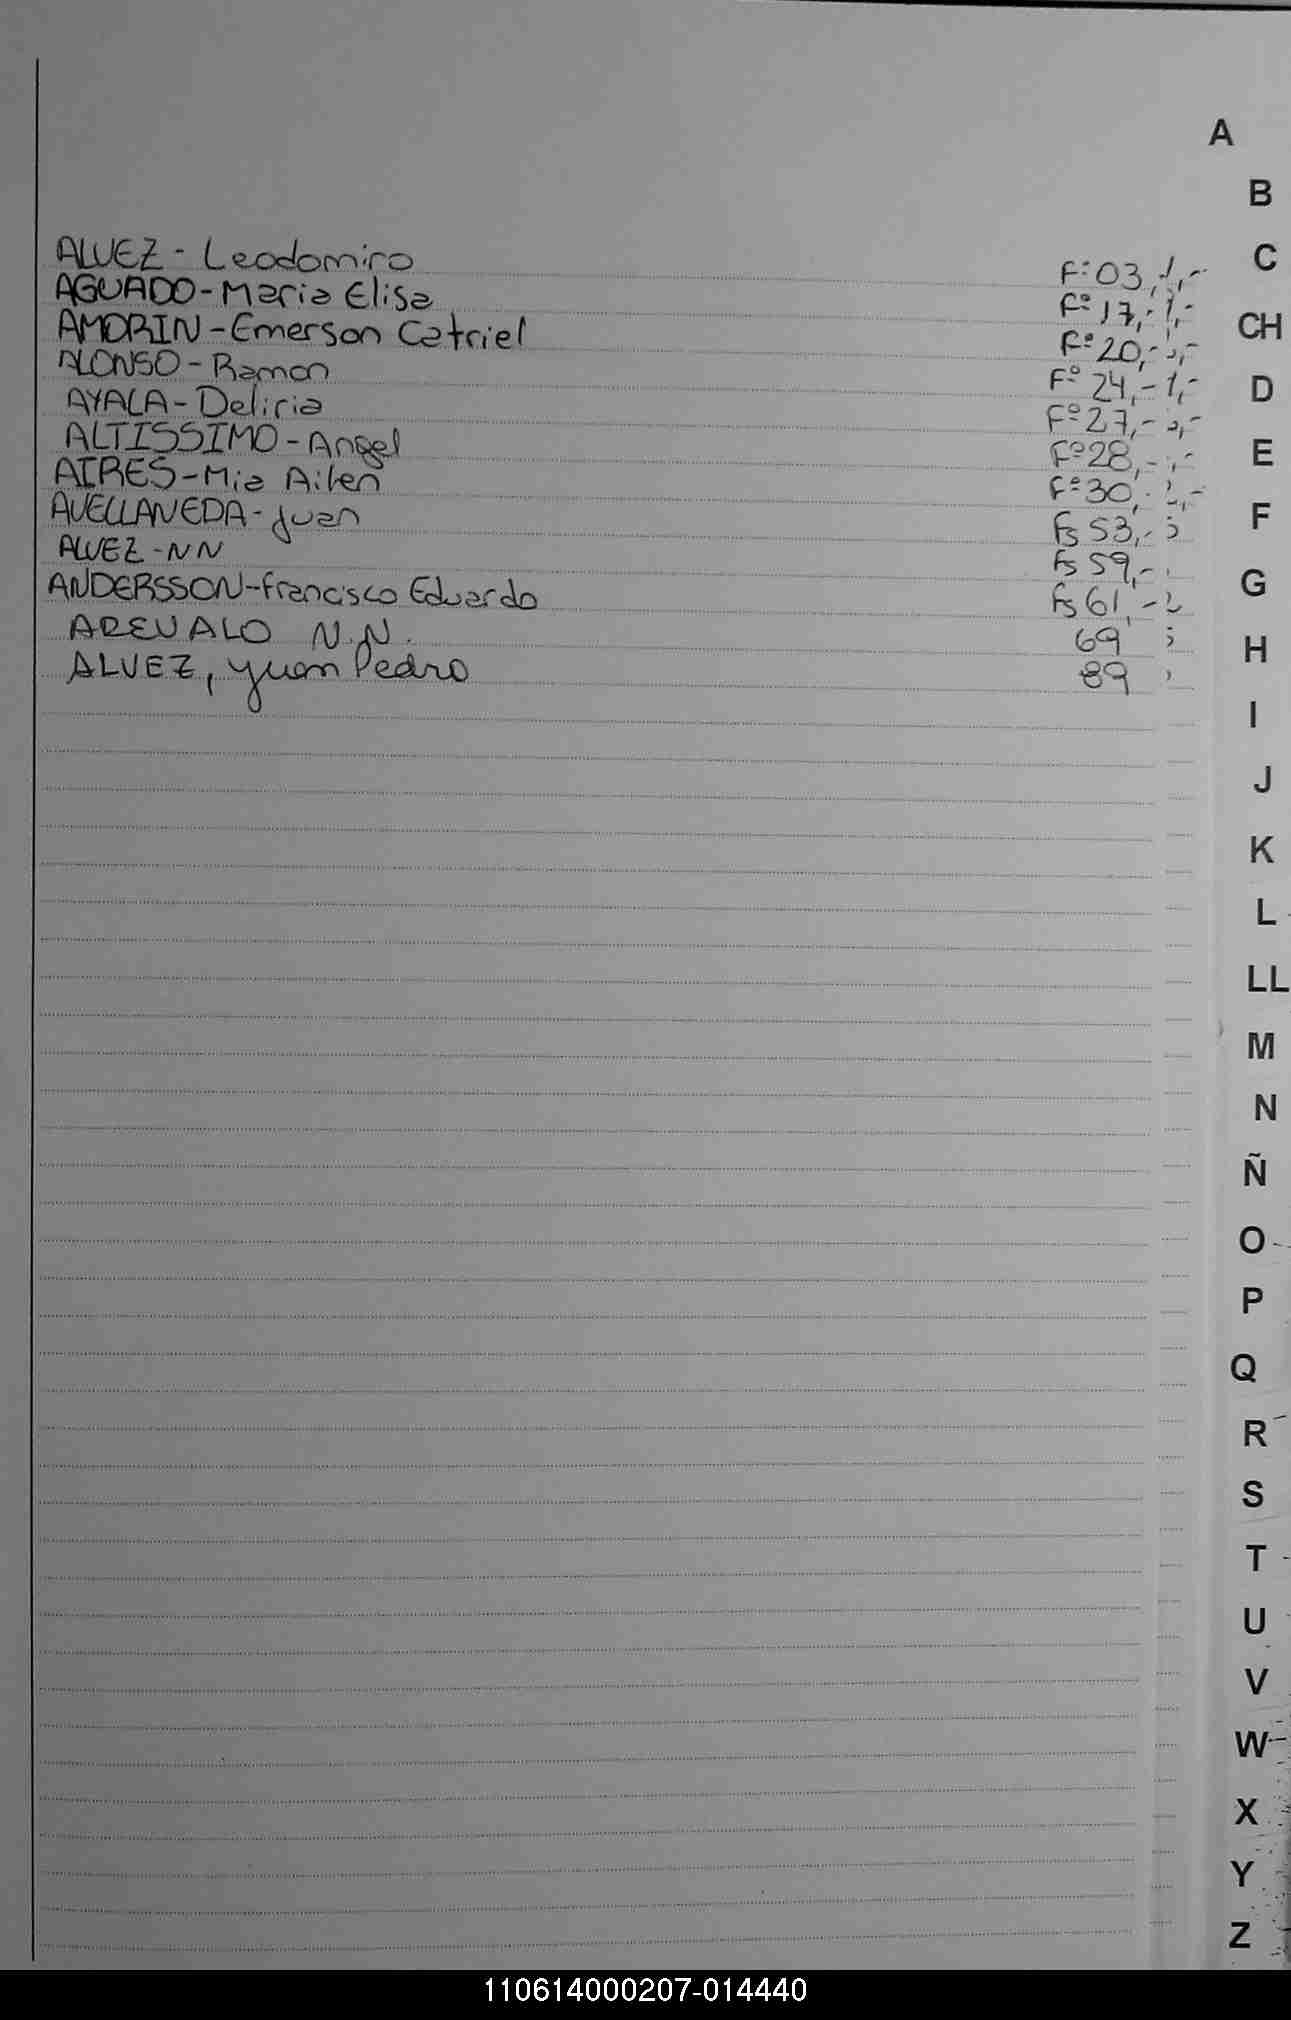 A
B
C
CH
D
E
F
G
H
I
J
K
L
LL
M
N
Ñ
O
P
Q
R
S
T
U
V
W
X
Y
Z
ALVEZ - Leodomiro Fº 03,-
AGUADO - Maria Elisa Fº 17,-
AMORIN - Emerson Catriel Fº 20,-
ALONSO - Ramon Fº 24,-
AYALA - Deliria Fº 27,-
ALTISSIMO - Angel Fº 28,-
AIRES - Mia Ailen Fº 30,-
AVELLANEDA - Juan Fs 53,-
ALVEZ - NN Fs 59,-
ANDERSSON - Francisco Eduardo Fs 61,-
AREVALO N.N. 69
ALVEZ, Juan Pedro 89
110614000207-014440